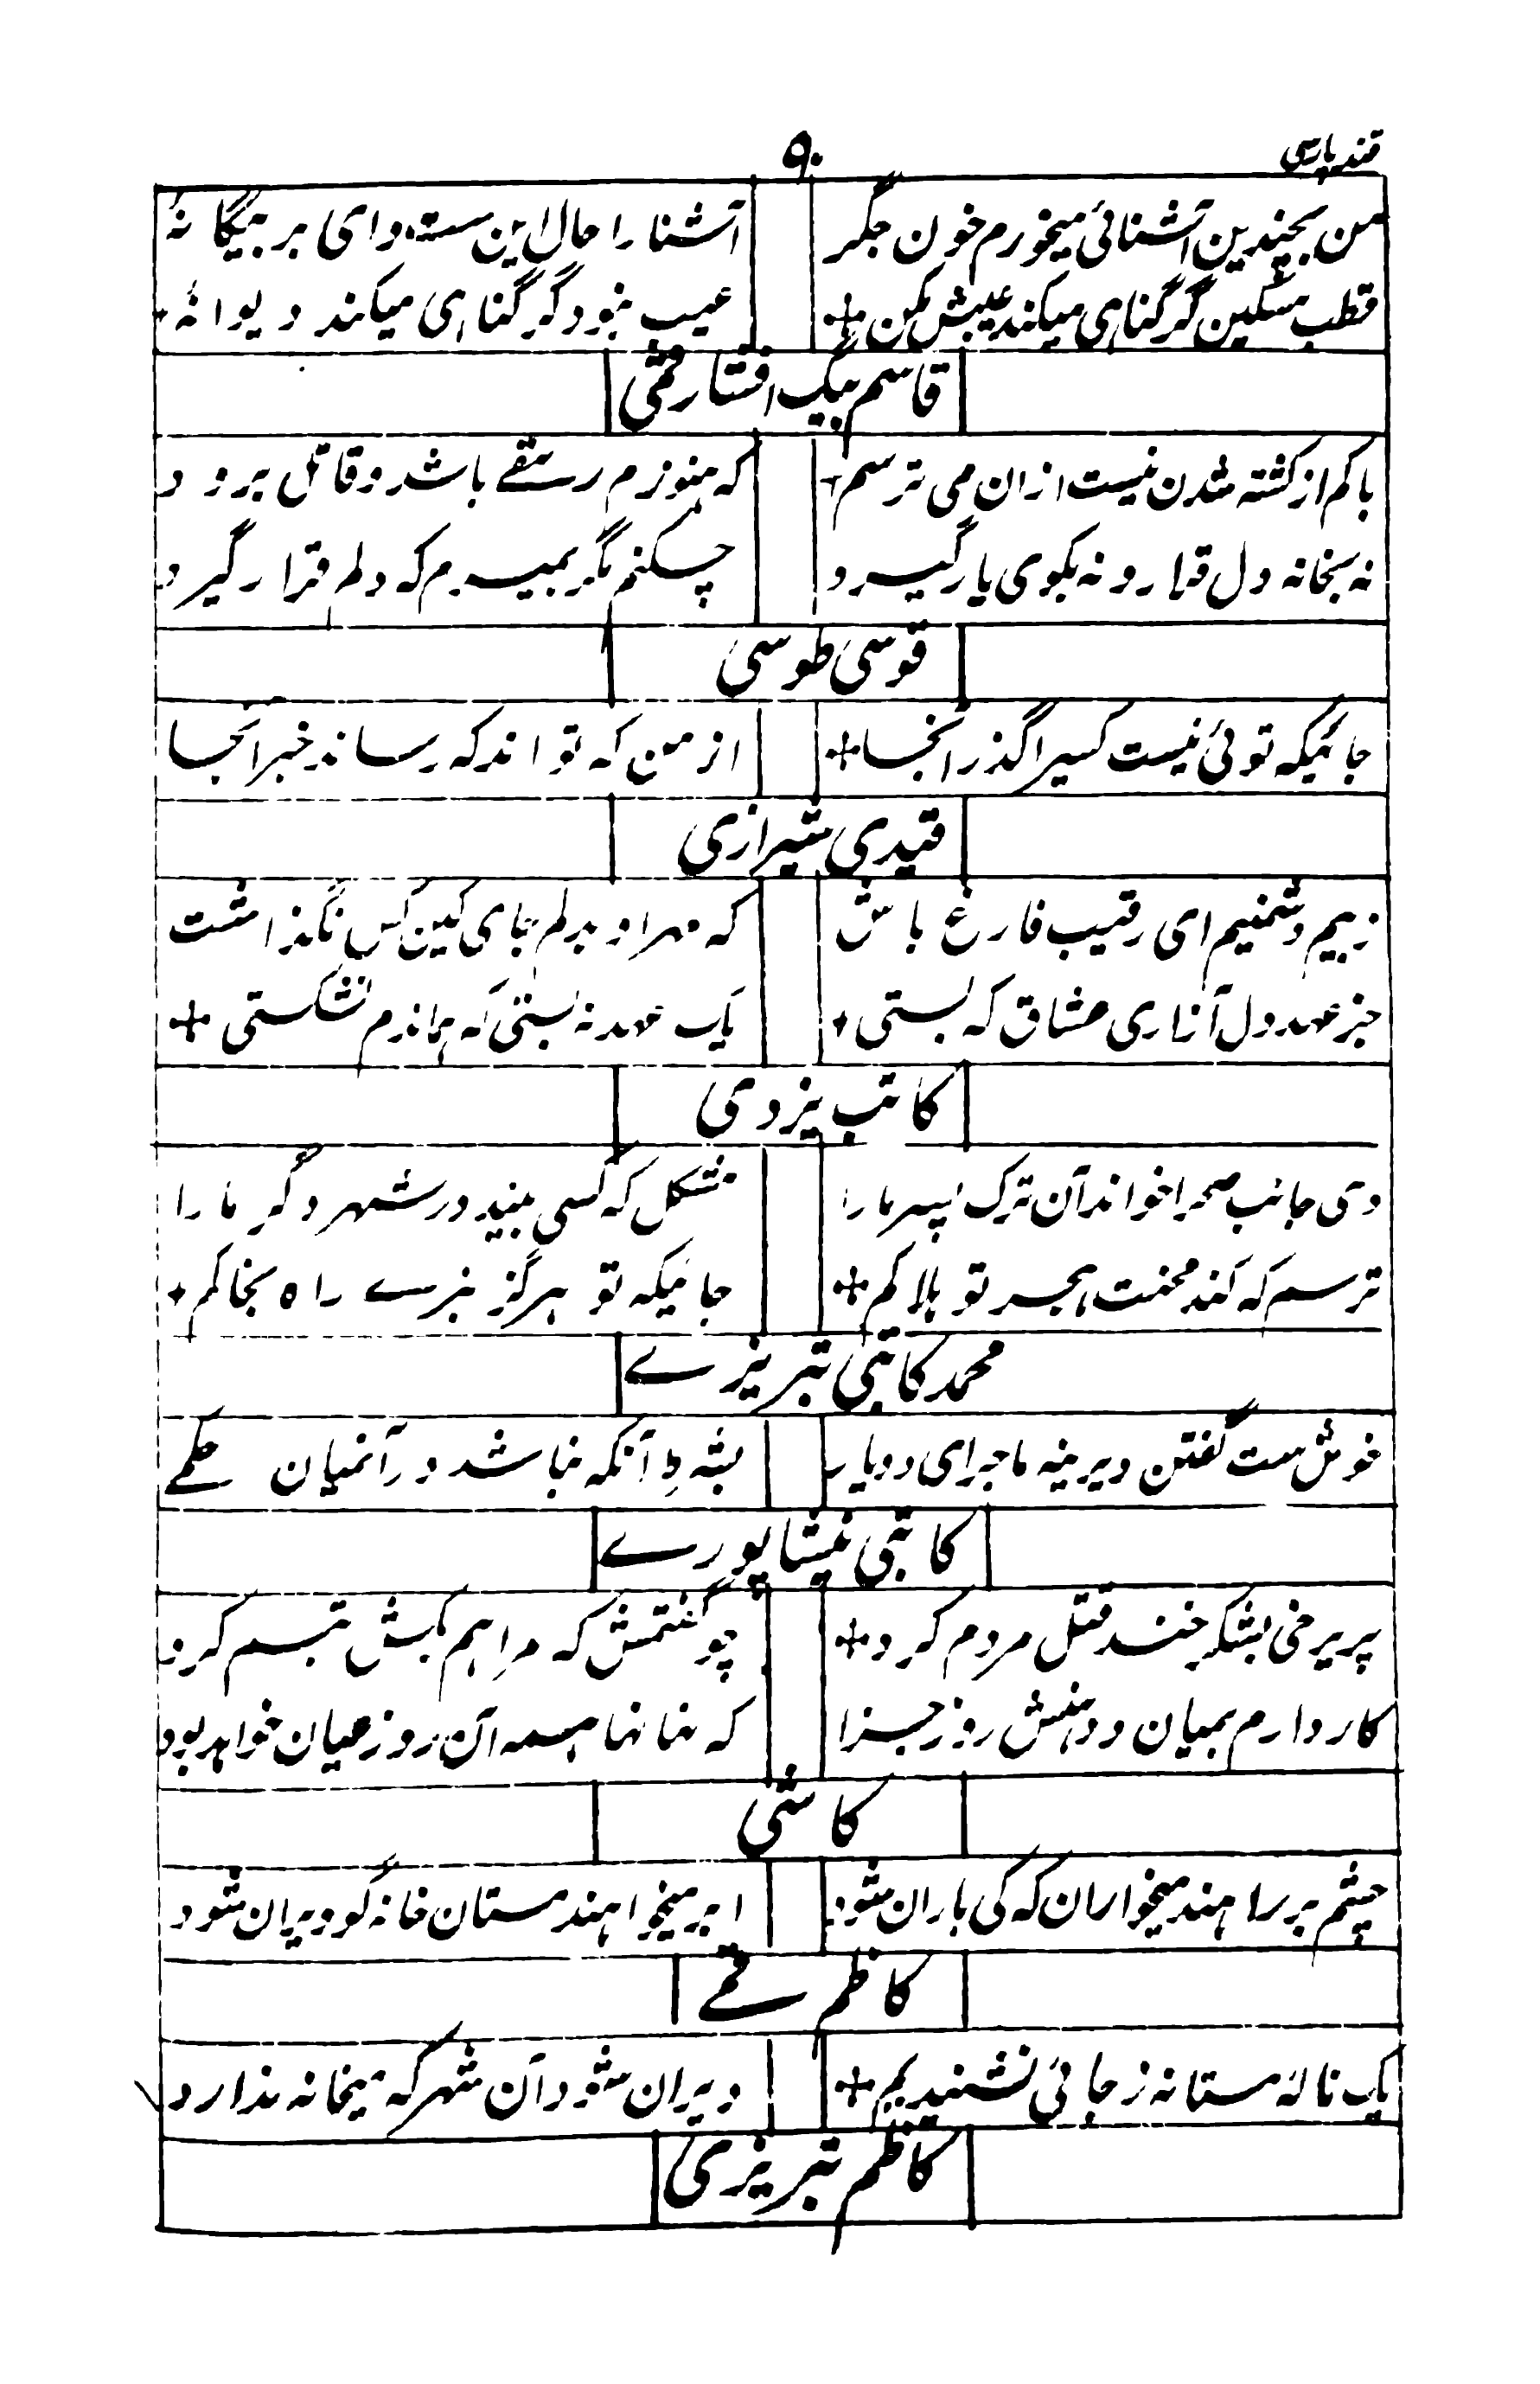 قند پارسی ۹۰
من بچندین آشنائی میخورم خون جگر آشنا را حال این ست وای بر بیگانهٔ
قطب مسکین گر گناهی میکند عیبش مکن + عیب نبود گر گناهی میکند دیوانهٔ +
قاسم بیگ افشار قمی
باکم از کشته شدن نیست ازان می ترسم + که هنوزم رمقے باشد و قاتل برود
نه بخانه دل قرار و نه بکوی یار گیرد چکنم مگر بمیرم که دلم قرار گیرد
قوسی طوسی
جائیکه توئی نیست کسیرا گذر آنجا + از من که تواند که رساند خبر آنجا
قیدی شیرازی
ز بیم دشمنیم ای رقیب فارغ باش که مهر او بدلم جای کین کس نگذاشت
جز عهد دل آزاری عشاق که بستی + یک عهد نه بستی که هماندم نشکستی +
کاتب یزدی
دی جانب صحرا خواند آن ترک پسر ما را مشکل که کسی بیند در شهر دگر ما را
ترسم که کند محنت هجر تو هلاکم + جائیکه تو هرگز نبرے راه بخاکم +
محمد کاتبی تبریزے
خوش ست گفتن دیرینه ماجرای دو یار بشرط آنکه نباشد در آنمیان حکمے
کاتبی نیشاپورے
پریرخی بشکرخند قتل مردم کرد + چو گفتمش که مرا هم بکش تبسم کرد
کار دارم بمیان و دهنش روز جزا که نهانها همه آن روز عیان خواهد بود
کاشی
چشم بر راهند میخواران که کی باران شود ابر میخواهند مستان خانه گو ویران شود
کاظم قمے
یک نالهٔ مستانه ز جائی نشنیدیم + ویران شود آن شهر که میخانه ندارد
کاظم تبریزی